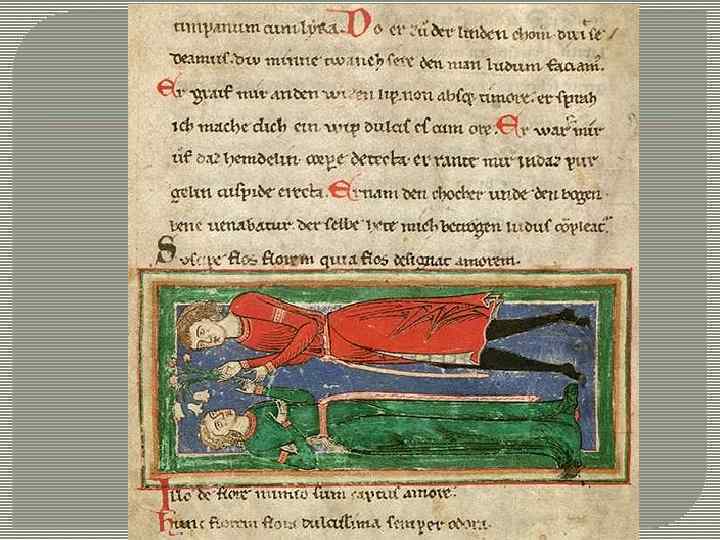 timpanum cum lyra. Do er zů der linden chom dixi se
deamus. div minne twanch sere den man ludum faciam⁹.
Er graif mir an den wizen lip. non absq; timore. er sprah
ich mache dich ein wip dulcis es cum ore. Er warf mir
ůf daz hemdelin corpe detecta er rante mir in daz pur
gelin cuspide erecta. Er nam den chocher unde den bogen
bene uenabatur. der selbe hete mich betrogen ludus cōpleat⁹.
Suscipe flos florem quia flos designat amorem.
Illo de flore nimio sum captus amore.
Hunc florem flora dulcissima semper odora.